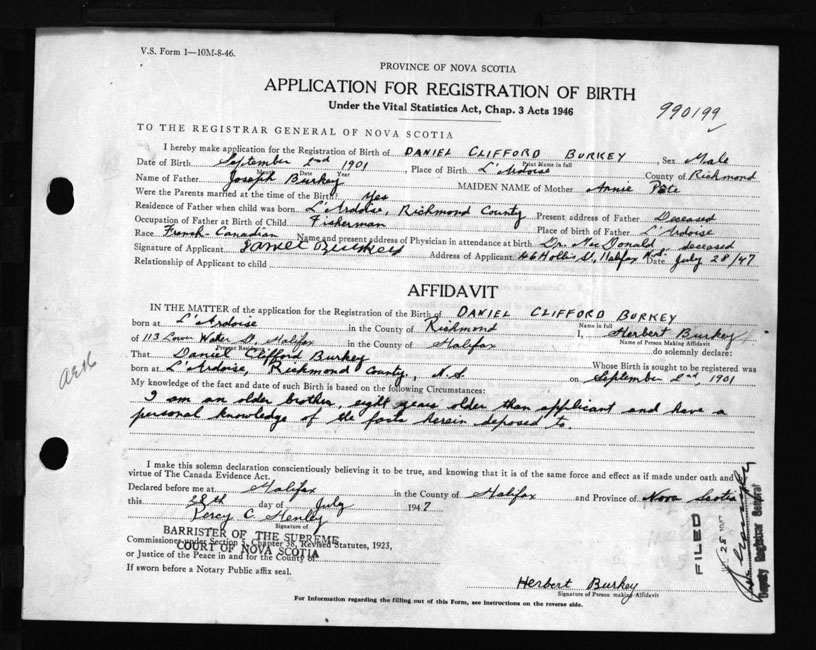 V.S. Form 1—10M-8-46.
PROVINCE OF NOVA SCOTIA
APPLICATION FOR REGISTRATION OF BIRTH
Under the Vital Statistics Act, Chap. 3 Acts 1946
990199
TO THE REGISTRAR GENERAL OF NOVA SCOTIA
I hereby make application for the Registration of Birth of DANIEL CLIFFORD BURKEY, Sex Male
Print Name in full
Date of Birth September 2nd 1901, Place of Birth L'Ardoise County of Richmond
Month Date Year
Name of Father Joseph Burkey MAIDEN NAME of Mother Annie Pate
Were the Parents married at the time of the Birth? Yes
Residence of Father when child was born L'Ardoise, Richmond County Present address of Father Deceased
Occupation of Father at Birth of Child Fisherman Place of birth of Father L'Ardoise
Race French-Canadian Name and present address of Physician in attendance at birth Dr. MacDonald, deceased
Signature of Applicant Daniel Burkey Address of Applicant 46 Hollis St, Halifax N.S. Date July 28/47
Relationship of Applicant to child
AFFIDAVIT
IN THE MATTER of the application for the Registration of the Birth of DANIEL CLIFFORD BURKEY
Name in full
born at L'Ardoise in the County of Richmond I, Herbert Burkey
Name of Person Making Affidavit
of 113 Lower Water St. Halifax in the County of Halifax do solemnly declare:
Present Residence
That Daniel Clifford Burkey Whose Birth is sought to be registered was
born at L'Ardoise, Richmond County, N.S. on September 2nd, 1901
My knowledge of the fact and date of such Birth is based on the following Circumstances:
I am an older brother, eight years older than applicant and have a
personal knowledge of the facts herein deposed to.
I make this solemn declaration conscientiously believing it to be true, and knowing that it is of the same force and effect as if made under oath and
virtue of The Canada Evidence Act.
Declared before me at Halifax in the County of Halifax and Province of Nova Scotia
this 28th day of July 1947
Percy C. Henley
Signature of
BARRISTER OF THE SUPREME
Commissioner under Section 5, Chapter 38, Revised Statutes, 1923,
COURT OF NOVA SCOTIA
or Justice of the Peace in and for the County of
If sworn before a Notary Public affix seal.
Herbert Burkey
Signature of Person making Affidavit
For Information regarding the filling out of this Form, see instructions on the reverse side.
FILED
28 1947
Deputy Registrar General